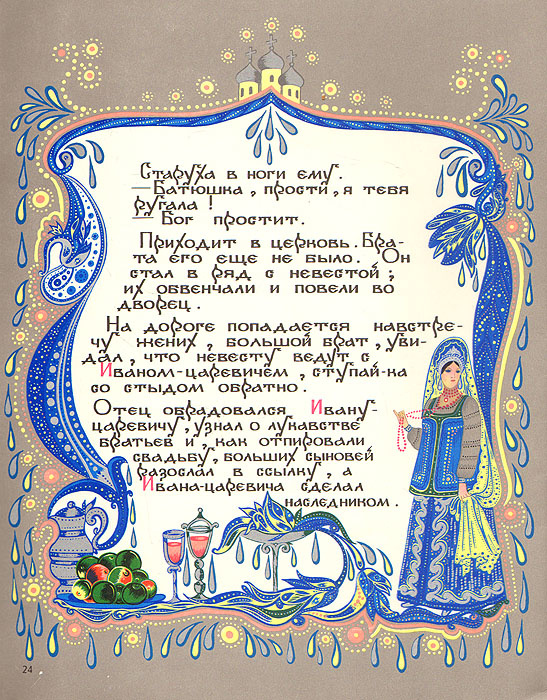 Старуха в ноги ему.
— Батюшка, прости, я тебя
ругала!
— Бог простит.
Приходит в церковь. Бра-
та его еще не было. Он
стал в ряд с невестой;
их обвенчали и повели во
дворец.
На дороге попадается навстре-
чу жених, большой брат, уви-
дал, что невесту ведут с
Иваном-царевичем, ступай-ка
со стыдом обратно.
Отец обрадовался Ивану-
царевичу, узнал о лукавстве
братьев и, как отпировали
свадьбу, больших сыновей
разослал в ссылку, а
Ивана-царевича сделал
наследником.
24